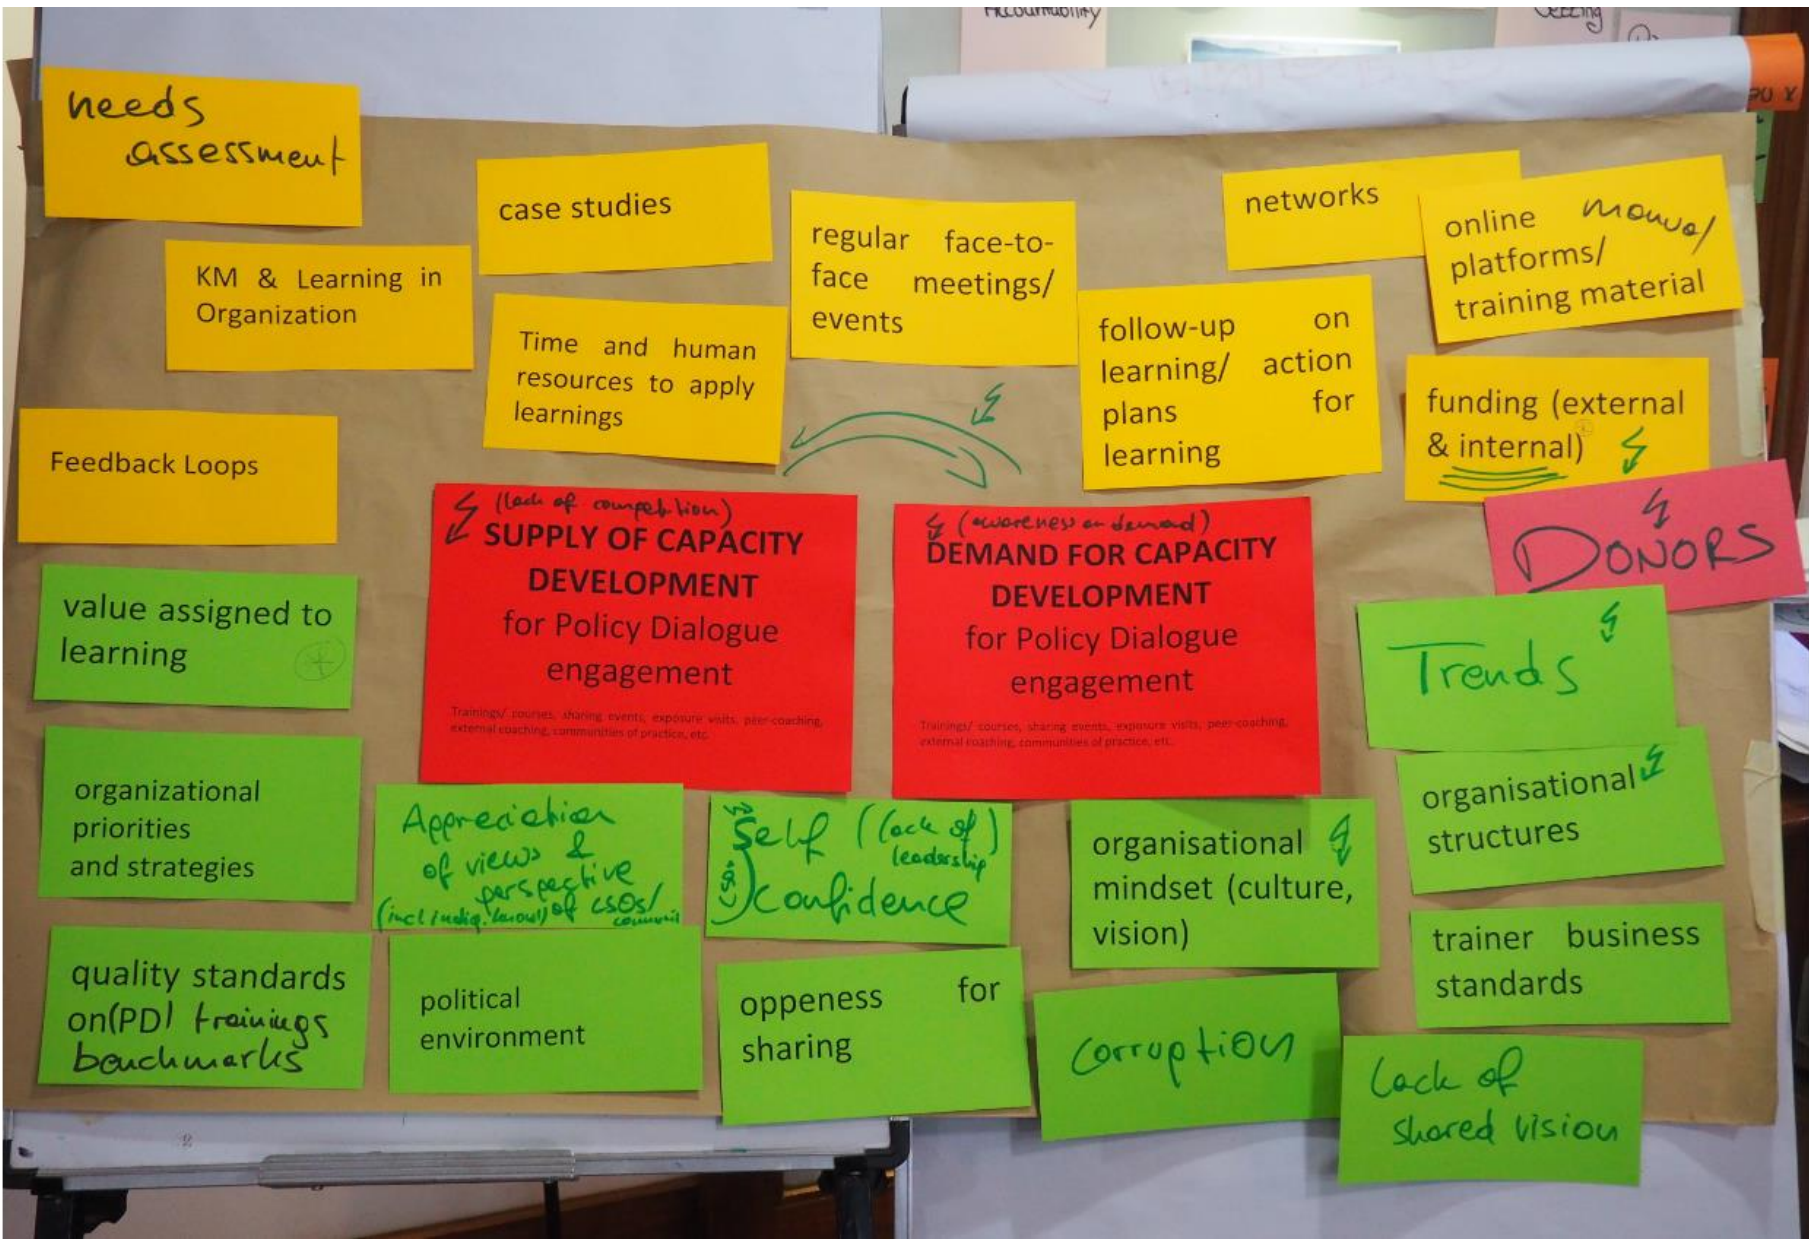 Accountability
needs
assessment
case studies
regular face-to-
face meetings/
events
networks
online manual
platforms/
training material
KM & Learning in
Organization
Time and human
resources to apply
learnings
follow-up on
learning/ action
plans for
learning
funding (external
& internal)
Feedback Loops
DONORS
(lack of competition)
SUPPLY OF CAPACITY
DEVELOPMENT
for Policy Dialogue
engagement
Trainings/ courses, sharing events, exposure visits, peer-coaching,
external coaching, communities of practice, etc.
(awareness on demand)
DEMAND FOR CAPACITY
DEVELOPMENT
for Policy Dialogue
engagement
Trainings/ courses, sharing events, exposure visits, peer-coaching,
external coaching, communities of practice, etc.
value assigned to
learning
Trends
organizational
priorities
and strategies
Appreciation
of views &
perspective
(incl indig. knowl) of CSOs/
Self (lack of)
leadership
Confidence
organisational
mindset (culture,
vision)
organisational
structures
quality standards
on(PD) trainings
benchmarks
political
environment
oppeness for
sharing
corruption
trainer business
standards
Lack of
shared vision